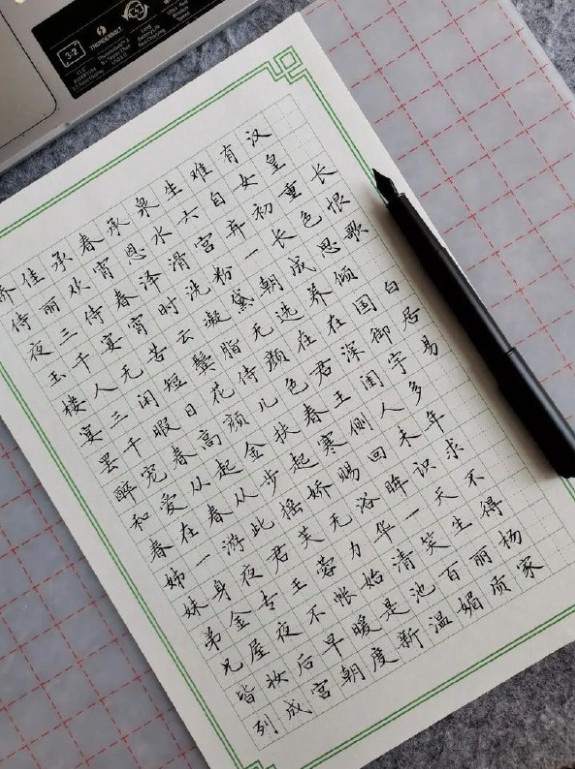 长恨歌 白居易
汉皇重色思倾国御宇多年求不得杨家
有女初长成养在深闺人未识天生丽质
难自弃一朝选在君王侧回眸一笑百媚
生六宫粉黛无颜色春寒赐浴华清池温
泉水滑洗凝脂侍儿扶起娇无力始是新
承恩泽时云鬓花颜金步摇芙蓉帐暖度
春宵春宵苦短日高起从此君王不早朝
承欢侍宴无闲暇春从春游夜专夜后宫
佳丽三千人三千宠爱在一身金屋妆成
娇侍夜玉楼宴罢醉和春姊妹弟兄皆列
3:2
THUNDERBOLT